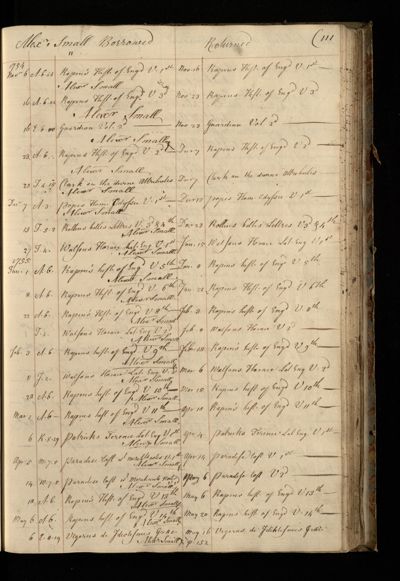 Alexr Small Borrowed Returned 111
1754
Nov 6 A.6.21 Rapins Hist. of Engd V. 1st Nov 16 Rapins Hist of Engd V 1st
Alexr Small
16 A.6. Rapins Hist of Engd V 3d Nov 23 Rapins Hist. of Engd V 3
Alexr Small
Guardian Vol. 2d Nov 23 Guardian Vol 2
Alexr Small
23 A.6. Rapins Hist: of Engd V. 2 Dec 7 Rapins Hist. of Engd V 2
Alexr Small
Clark on the divine Attributes Dec 7 Clark on the divine attributes
Alexr Small
Dec 7 A.2. popes Hom: Odyssey V. 1st popes Hom Odyssy V. 1st
Alexr Small
13 Rollins belles Lettres V. 3 & 4th Dec 23 Rollins belles Lettres V3 & 4th
Alexr Small
27 Watsons Horace Lat Eng V. 1st Watsons Horace Lat Eng V 1st
Alexr Small
1755
A.6. Rapins hist. of Engd V 5th Rapins hist of Engd V 5th
Alexr Small
8 A.6. Rapins Hist of Engd V. 6th Rapins Hist. of Engd V 6th
Alexr Small
22 A.6. Rapins Hist. of Engd V 8th Feb. 8 Rapins hist of Engd V 8th
Alexr Small
Watsons Horace Lat Eng V 2 Feb 8 Watsons Horace V 2
Alexr Small
Feb. 8 A.6 Rapins hist of Engd V 9th Rapins hist of Engd V 9th
Alexr Small
8 Watsons Horace Lat Eng V 2 Mar 6 Watsons Horace Lat Eng V 2
Alexr Small
20 A.6. Rapins hist. of Engd V 10th Mar 10 Rapins hist. of Engd V 10th
Alexr Small
Mar 2 A.6 Rapins hist of Engd V 11th Apr 10 Rapins hist. of Engd V 11th
Alexr Small
6 Patricks Terence Lat Eng V 1st Apr 4 Patricks Terence Lat Eng. V 1st
Alexr Small
Apr 5 Paradise lost V 1st Apr 14 Paradise lost V 1st
Alexr Small
14 Paradise lost May 6 Paradise lost V 2
Alexr Small
10 A.6 Rapins Hist of Engd V 13th May 6 Rapins hist. of Engd V 13th
Alexr Small
May 6 A.6. Rapins hist. of Engd V 14th May 20 Rapins hist. of Engd V 14th
Alexr Small
6 Vigerus de Idiotismis Graec May 16 Vigerus de Idiotismis Graec
Alexr Small p. 152